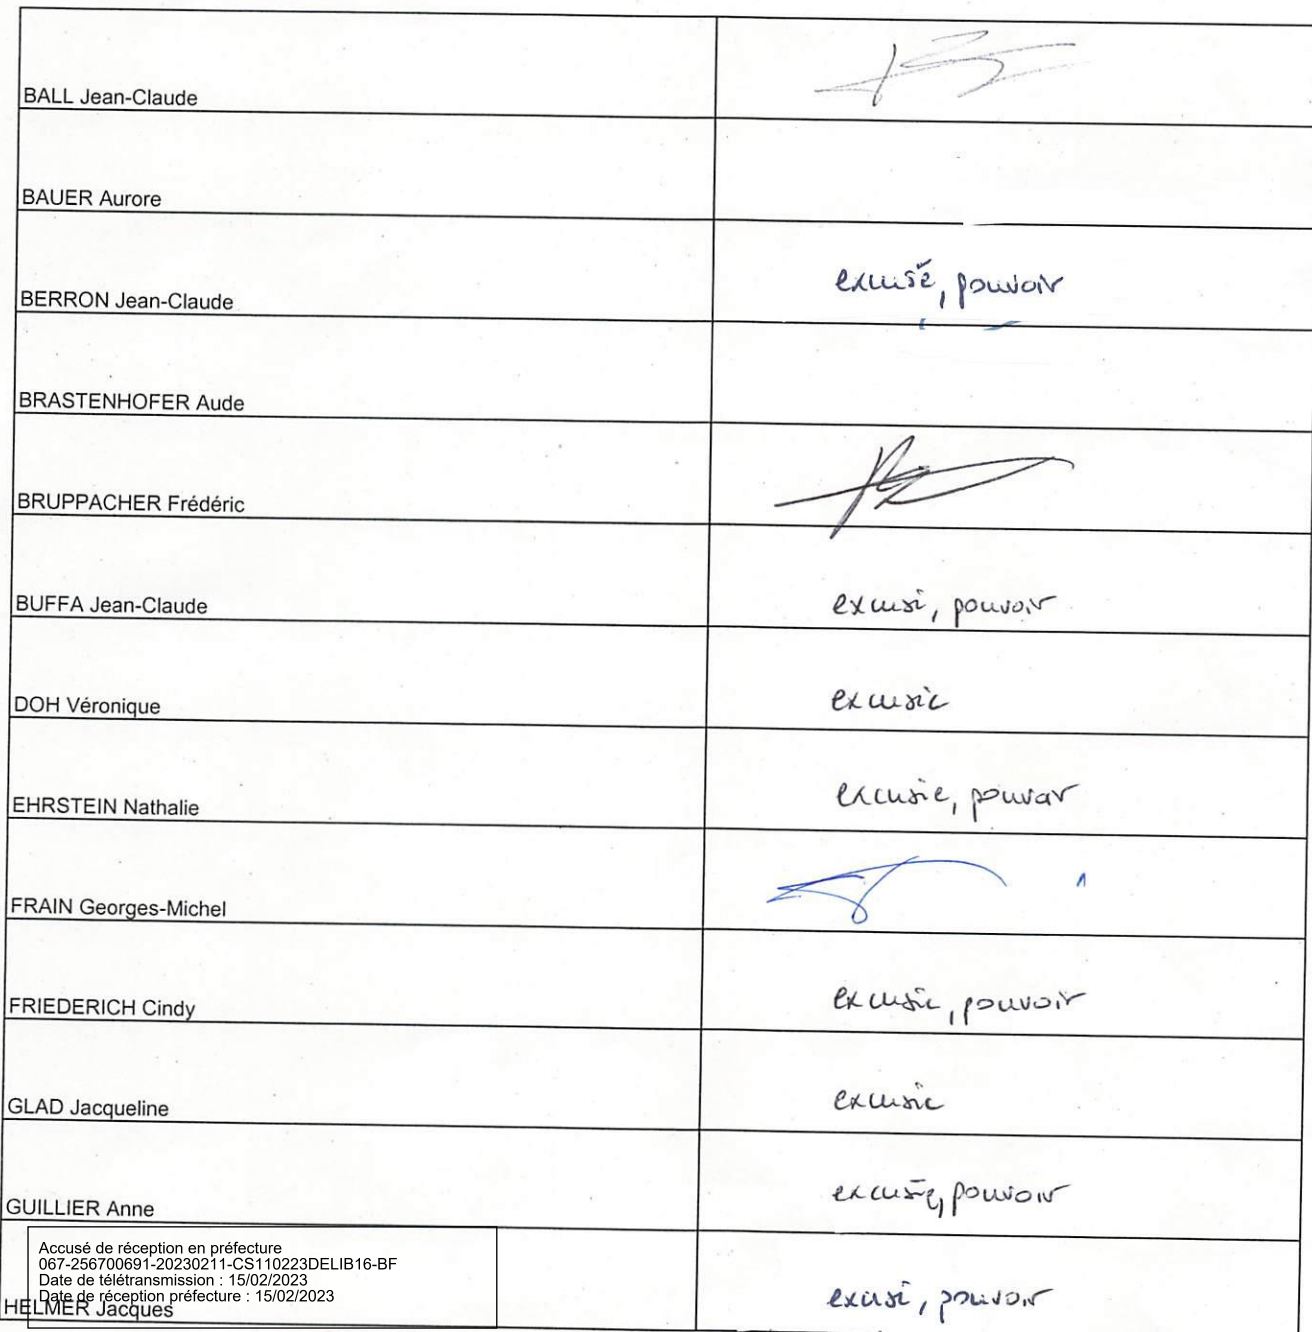 BALL Jean-Claude
BAUER Aurore
BERRON Jean-Claude excusé, pouvoir
BRASTENHOFER Aude
BRUPPACHER Frédéric
BUFFA Jean-Claude excusé, pouvoir
DOH Véronique excusée
EHRSTEIN Nathalie excusée, pouvoir
FRAIN Georges-Michel
FRIEDERICH Cindy excusée, pouvoir
GLAD Jacqueline excusée
GUILLIER Anne excusée, pouvoir
Accusé de réception en préfecture
067-256700691-20230211-CS110223DELIB16-BF
Date de télétransmission : 15/02/2023
Date de réception préfecture : 15/02/2023
HELMER Jacques excusé, pouvoir